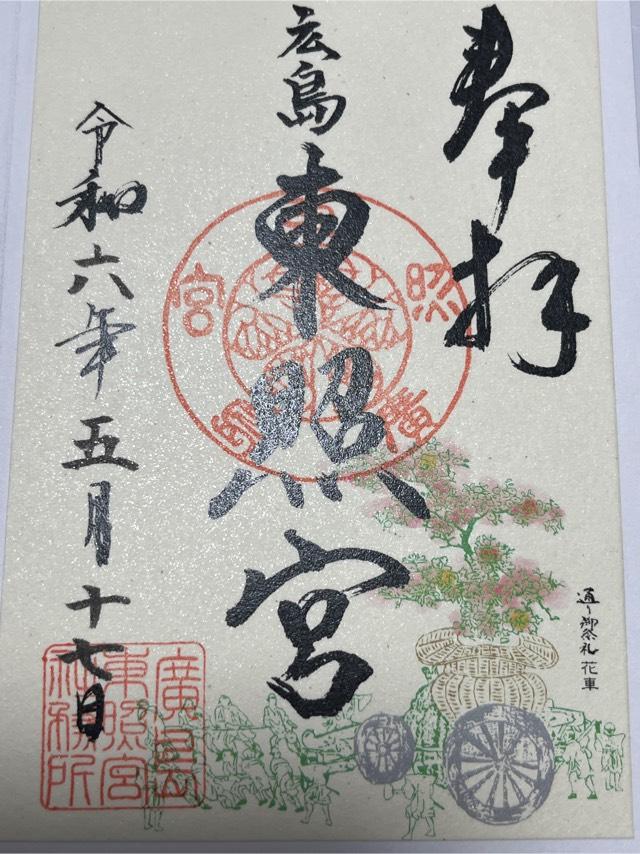 奉拝
広島
東照宮
令和六年五月十七日
通り御祭礼 花車
廣島
東照宮
社務所